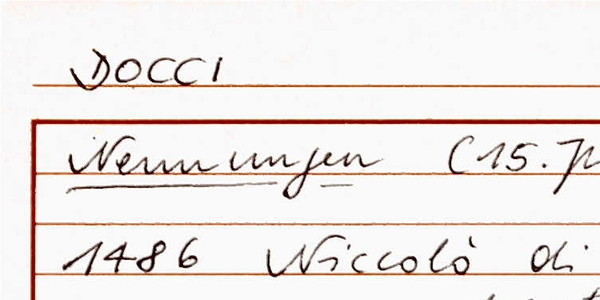 DOCCI
Nennungen (15. Jh
1486 Niccolò di